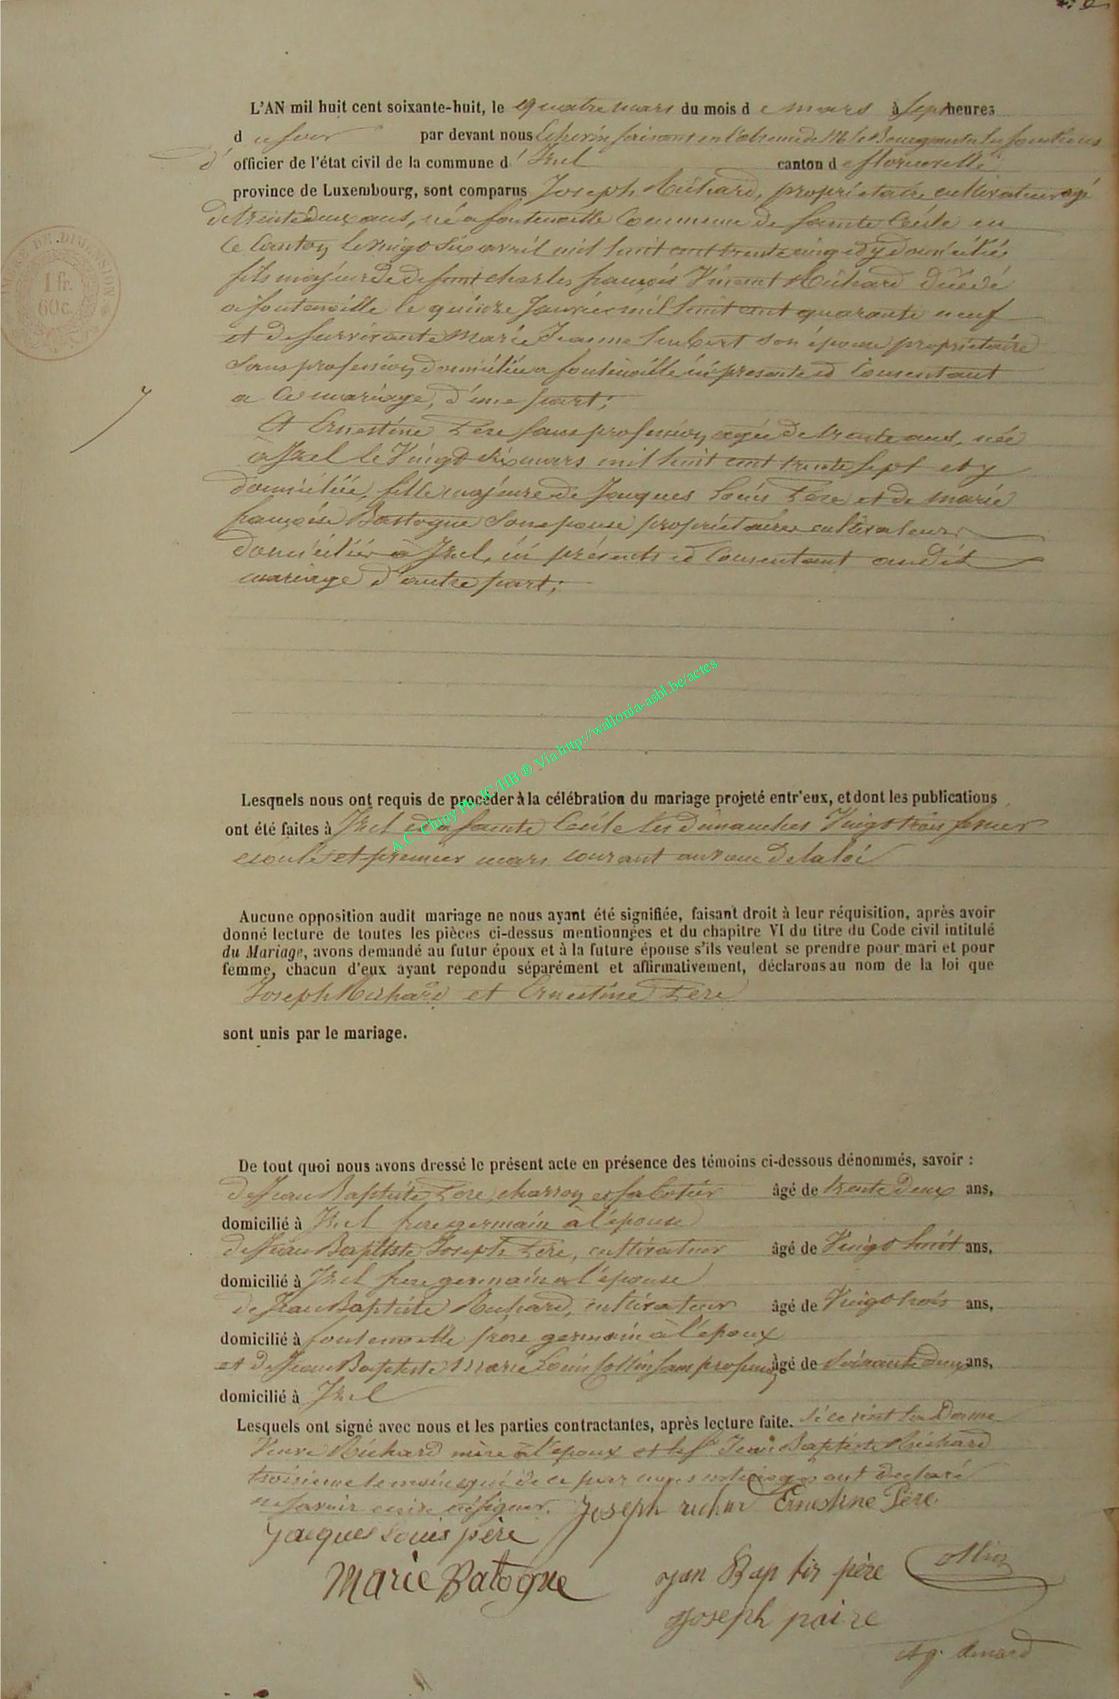 L'AN mil huit cent soixante-huit, le quatre mars du mois de mars à sept heures
du soir par devant nous Echevin faisant en l'absence de Mr le Bourgmestre les fonctions
d' officier de l'état civil de la commune d'Izel canton de florenville
province de Luxembourg, sont comparus Joseph Richard, propriétaire cultivateur agé
de trente deux ans, né a fontenoille Commune de Sainte Cécile en
ce Canton le vingt six avril mil huit cent trente cinq et y domicilié
fils majeur de defunt charles françois Vincent Richard décédé
a fontenoille le quinze Janvier mil huit cent quarante neuf
et de survivante Marie Jeanne son épouse propriétaire
Sans profession domiciliée a fontenoille ici présente et Consentant
a ce mariage, d'une part;
Et Ernestine Père sans profession, agée de trente ans, née
à Izel le Vingt mars mil huit cent trente sept et y
domiciliée, fille majeure de Jacques Louis Père et de Marie
françoise Bastogne son epouse propriétaires cultivateurs
domiciliés à Izel, ici présents et Consentant audit
mariage d'autre part;
1 fr.
60c.
A.C. Chiny Ph. JC HB ® Via http://wallonia-asbl.be/actes
Lesquels nous ont requis de procéder à la célébration du mariage projeté entr'eux, et dont les publications
ont été faites à Izel et a Sainte Cécile les dimanches Vingt trois fevrier
écoulé et premier mars courant au vœu de la loi
Aucune opposition audit mariage ne nous ayant été signifiée, faisant droit à leur réquisition, après avoir
donné lecture de toutes les pièces ci-dessus mentionnées et du chapitre VI du titre du Code civil intitulé
du Mariage, avons demandé au futur époux et à la future épouse s'ils veulent se prendre pour mari et pour
femme, chacun d'eux ayant répondu séparément et affirmativement, déclarons au nom de la loi que
Joseph Richard et Ernestine Père
sont unis par le mariage.
De tout quoi nous avons dressé le présent acte en présence des témoins ci-dessous dénommés, savoir :
de Jean Baptiste Père, charron et sabotier âgé de trente deux ans,
domicilié à Izel frere germain à l'épouse
de Jean Baptiste Joseph Père, cultivateur âgé de Vingt huit ans,
domicilié à Izel frere germain a l'épouse
de Jean Baptiste Richard, cultivateur âgé de Vingt trois ans,
domicilié à fontenoille frere germain à l'époux
et de Jean Baptiste Marie Louis Collin sans profession âgé de Soixante deux ans,
domicilié à Izel
Lesquels ont signé avec nous et les parties contractantes, après lecture faite. Si ce n'est la Dame
Veuve Richard mère à l'époux et le Sr Jean Baptiste Richard
troisieme temoin qui de ce par nous ont declaré
ne savoir ecrire ni signer. Joseph richard Ernestine Père
jacques Louis père
Marie Batogne jan Baptis père Collin
joseph paire